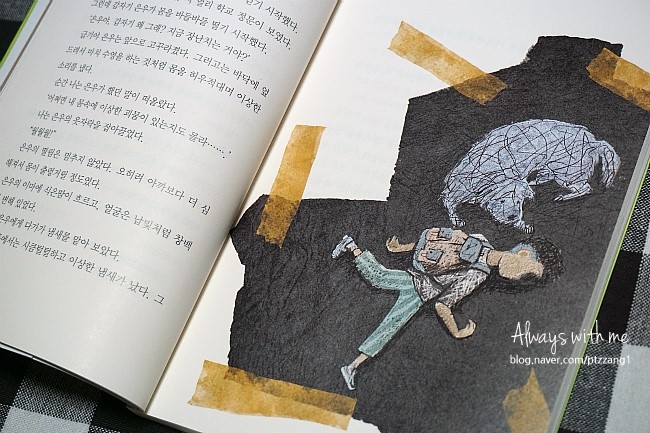 멀리 학교 정문이 보였다.
그런데, 갑자기 은우가 몸을 바들바들 떨기 시작했다.
"은우야, 갑자기 왜 그래? 지금 장난치는 거야?"
급기야 은우는 앞으로 고꾸라졌다. 그러고는 바닥에 엎
드려서 마치 수영을 하는 것처럼 몸을 허우적대며 이상한
소리를 냈다.
순간 나는 은우가 했던 말이 떠올랐다.
'어쩌면 내 몸속에 이상한 괴물이 있는지도 몰라……'
나는 은우의 웃자락을 잡아끌었다.
은우의 떨림은 멈추지 않았다. 오히려 아까보다 더 심
해져서 몸이 출렁거릴 정도였다.
은우의 이마에 식은땀이 흐르고, 얼굴은 납빛처럼 창백
해 있었다.
은우에게 다가가 냄새를 맡아 보았다.
에서는 시큼털털하고 이상한 냄새가 났다. 그
Always with me
blog.naver.com/ptzzang1